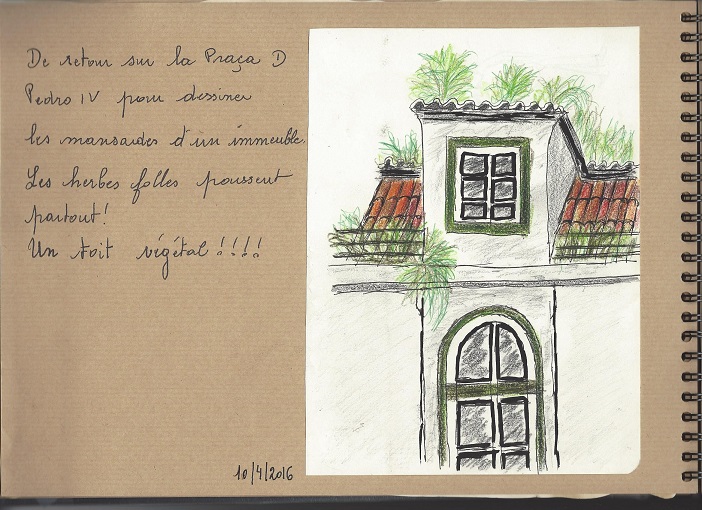 De retour sur la Praça D
Pedro IV pour dessiner
les mansardes d'un immeuble.
Les herbes folles poussent
partout!
Un toit végétal!!!!
10/4/2016